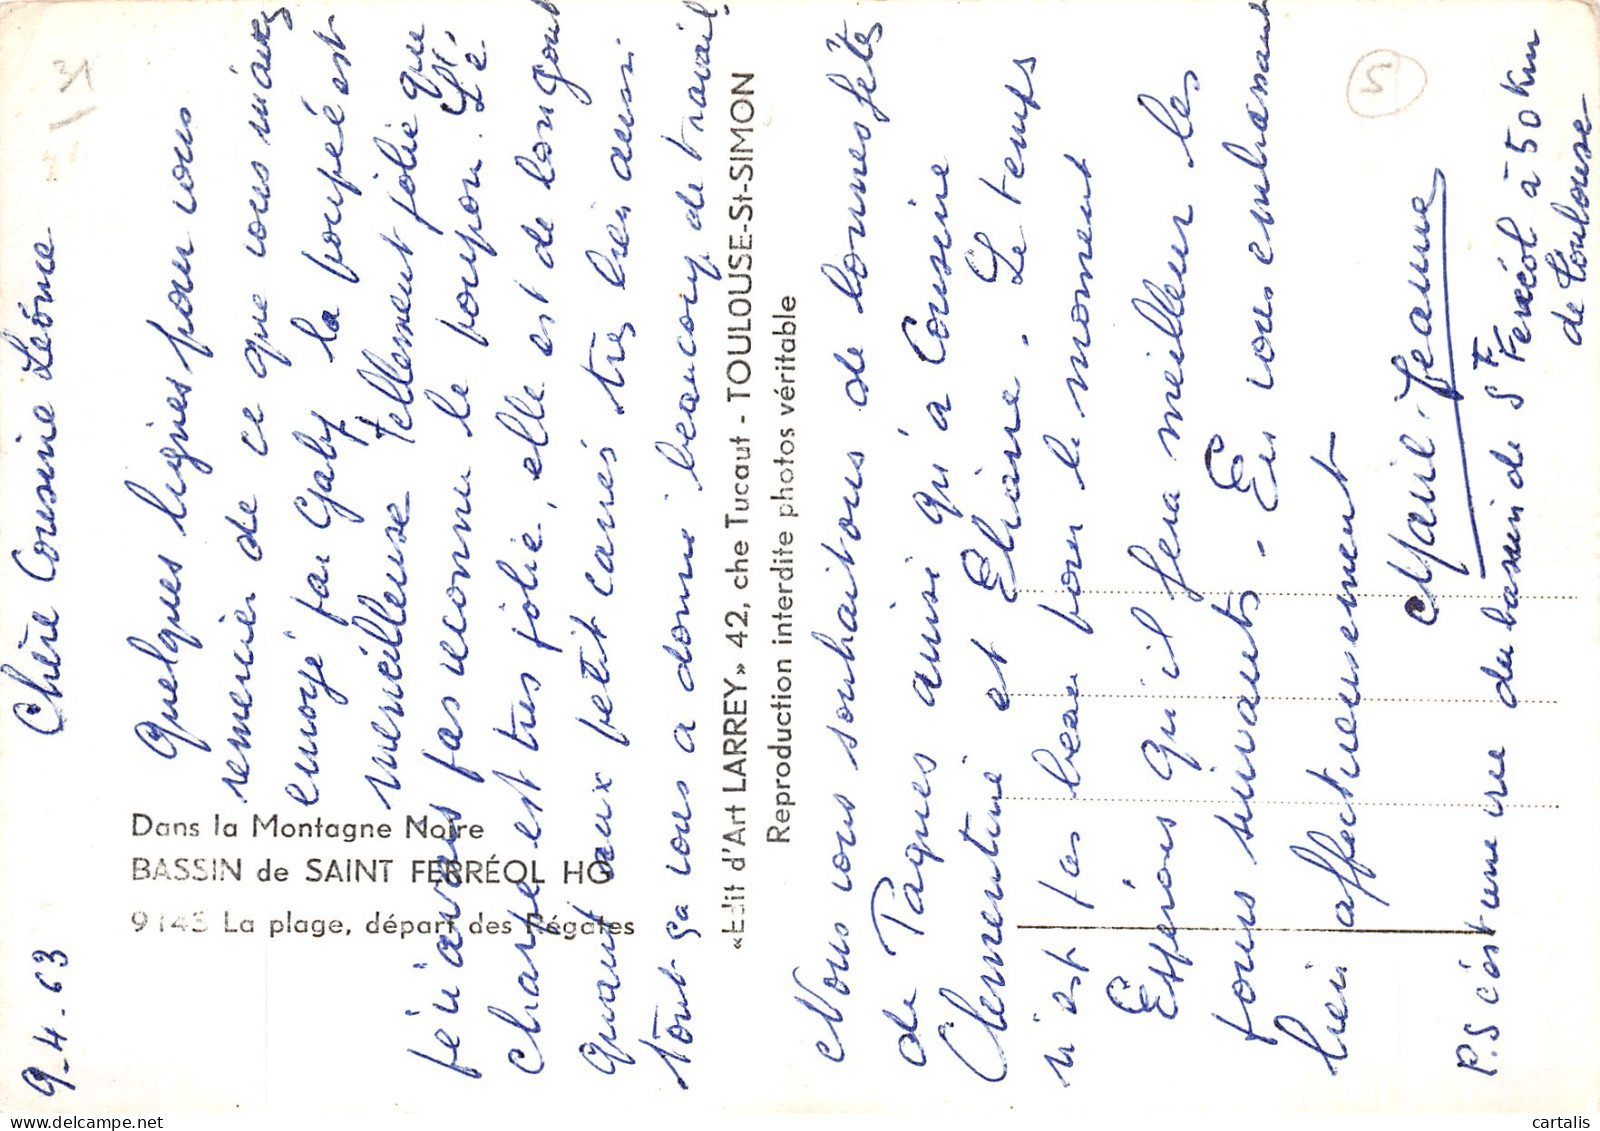 9-4-63
Chère Cousine Léone
Quelques lignes pour vous
remercier de ce que vous m'avez
envoyé par Gaby la poupée est
merveilleuse tellement jolie que
je n'avais pas reconnu le poupon. L'é
charpe est très jolie, elle est de bon goût
Quant aux petit carrés très bien aussi
tout ça vous a donné beaucoup de travail.
Nous vous souhaitons de bonnes fêtes
de Pâques ainsi qu'à Cousine
Clementine et Eliane. Le temps
n'est pas beau pour le moment
Espérons qu'il fera meilleur les
jours suivants. En vous embrassant
bien affectueusement
Marie-Jeanne
P.S c'est une vue du bassin de St Ferréol à 50 Km
de Toulouse
Dans la Montagne Noire
BASSIN de SAINT FERRÉOL HG
9143 La plage, départ des Régates
«Edit d'Art LARREY» 42, che Tucaut - TOULOUSE-St-SIMON
Reproduction interdite photos véritable
31
5
cartalis.com